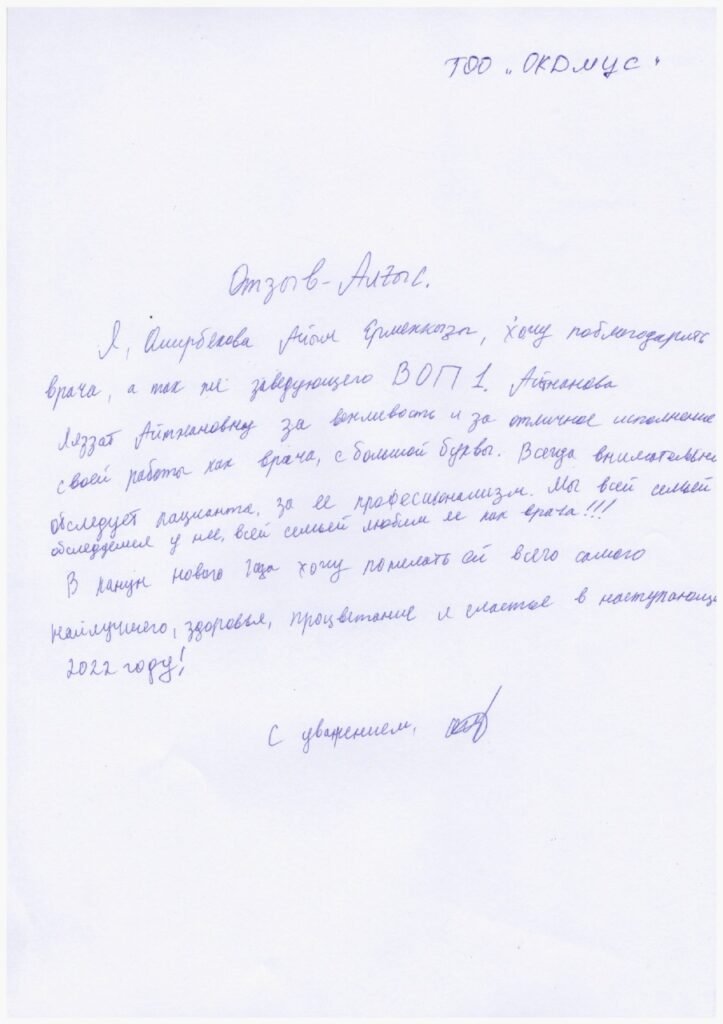 ТОО "ОКДМЦС"
Отзыв - Алғыс.
Я, Омирбекова Айым Ермекқызы, хочу поблагодарить
врача, а так же заведующего ВОП 1. Айтжанова
Ляззат Айтжановну за вежливость и за отличное исполнение
своей работы как врача, с большой буквы. Всегда внимательно
обследует пацианта, за ее професионализм. Мы всей семьей
обследуемся у нее, всей семьей любим ее как врача!!!
В канун нового года хочу пожелать ей всего самого
наилучшего, здоровья, процветание и счастье в наступающе
2022 году!
С уважением,